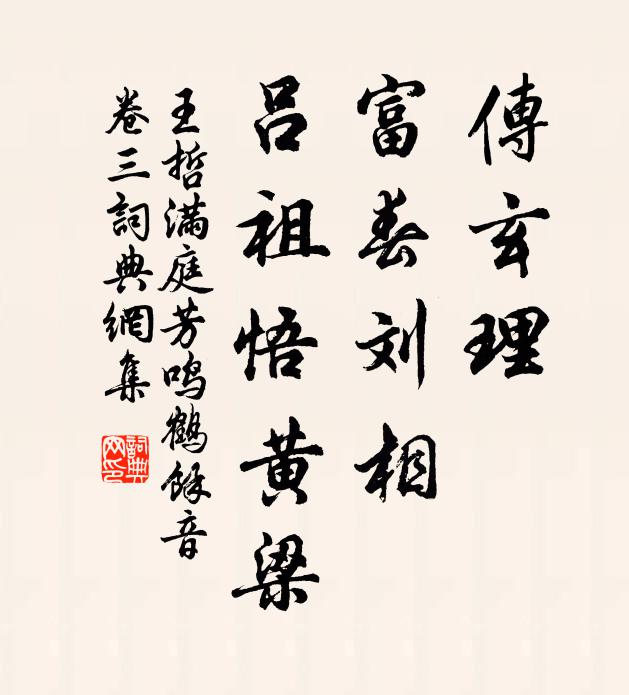 傳玄理
富春刘相
吕祖悟黄梁
王哲满庭芳鸣鹤馀音
卷三詞典網集
詞典网印